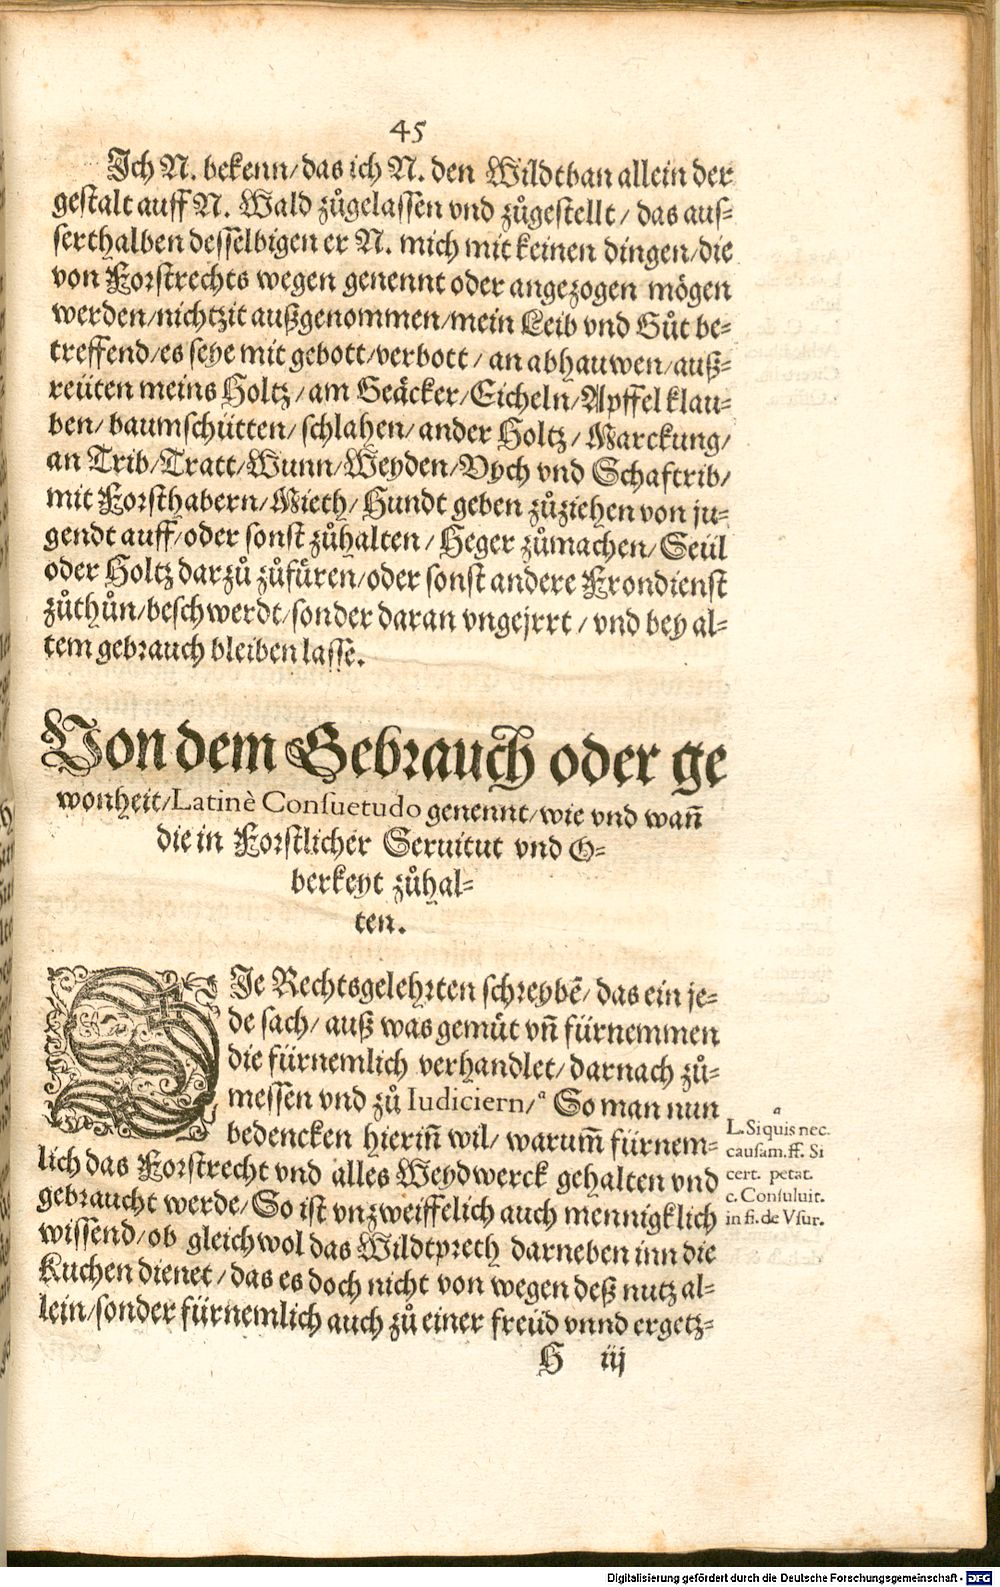 45
Ich N. bekenn/das ich N. den Wildtban allein der
gestalt auff N. Wald zůgelassen vnd zůgestellt/ das aus-
serthalben desselbigen er N. mich mit keinen dingen/die
von Forstrechts wegen genennt oder angezogen mögen
werden/nichtzit außgenommen/mein Leib vnd Gůt be-
treffend/es seye mit gebott/verbott/ an abhauwen/auß-
reüten meins Holtz/am Geäcker/Eicheln/Apffel klau-
ben/baumschütten/schlahen/ander Holtz/Marckung/
an Trib/Tratt/Wunn/Weyden/Vych vnd Schaftrib/
mit Forsthabern/Mieth/Hundt geben zůziehen von ju-
gendt auff/oder sonst zůhalten/Heger zůmachen/Seül
oder Holtz darzů zůfüren/oder sonst andere Frondienst
zůthůn/beschwerdt/sonder daran vngejrrt/vnd bey al-
tem gebrauch bleiben lassẽ.
Von dem Gebrauch oder ge
wonheit/Latinè Consuetudo genennt/wie vnd wañ
die in Forstlicher Seruitut vnd O-
berkeyt zůhal-
ten.
DIe Rechtsgelehrten schreybẽ/das ein je-
de sach/auß was gemüt vñ fürnemmen
die fürnemlich verhandlet/darnach zů-
messen vnd zů Iudiciern/ᵃ So man nun
bedencken hieriñ wil/warum̃ fürnem-
lich das Forstrecht vnd alles Weydwerck gehalten vnd
gebraucht werde/So ist vnzweiffelich auch mennigklich
wissend/ob gleichwol das Wildtpreth darneben inn die
Kuchen dienet/das es doch nicht von wegen deß nutz al-
lein/sonder fürnemlich auch zů einer freüd vnnd ergetz-
H iij
a
L. Si quis nec.
causam. ff. Si
cert. petat.
c. Consuluit.
in fi. de Vsur.
Digitalisierung gefördert durch die Deutsche Forschungsgemeinschaft - DFG